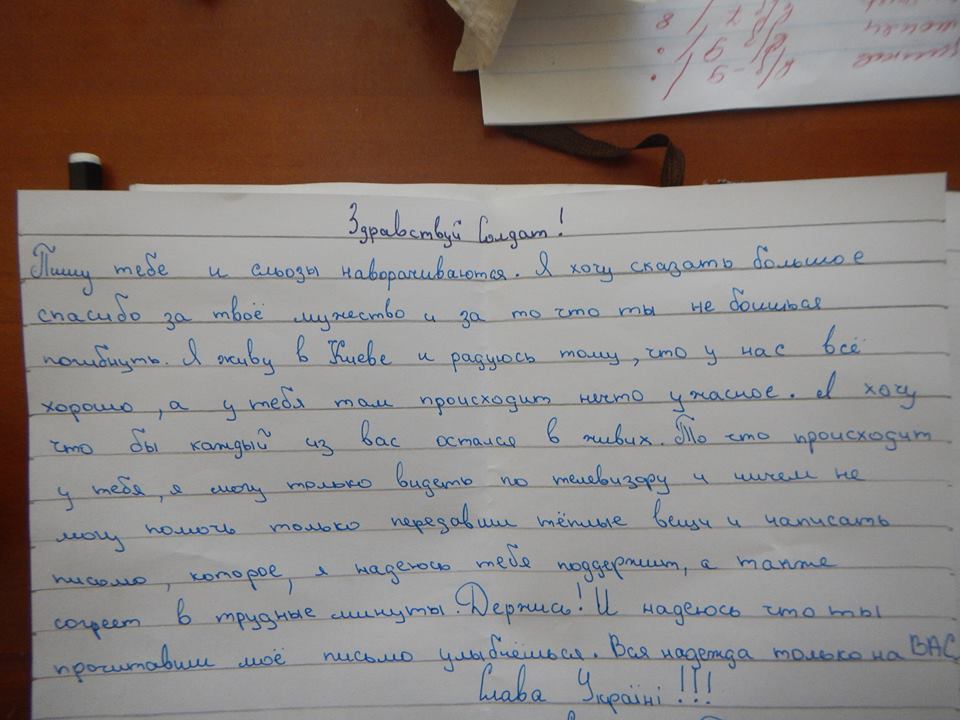 Здравствуй Солдат!
Пишу тебе и сльозы наворачиваются. Я хочу сказать большое
спасибо за твоё мужество и за то что ты не боишься
погибнуть. Я живу в Киеве и радуюсь тому, что у нас всё
хорошо, а у тебя там происходит нечто ужасное. Я хочу
что бы каждый из вас остался в живих. То что происходит
у тебя, я могу только видеть по телевизору и ничем не
могу помочь только передавши тёплые вещи и написать
письмо, которое, я надеюсь тебя поддержит, а также
согреет в трудные минуты. Держись! И надеюсь что ты
прочитавши моё письмо улыбнёшься. Вся надежда только на ВАС
Слава Україні!!!